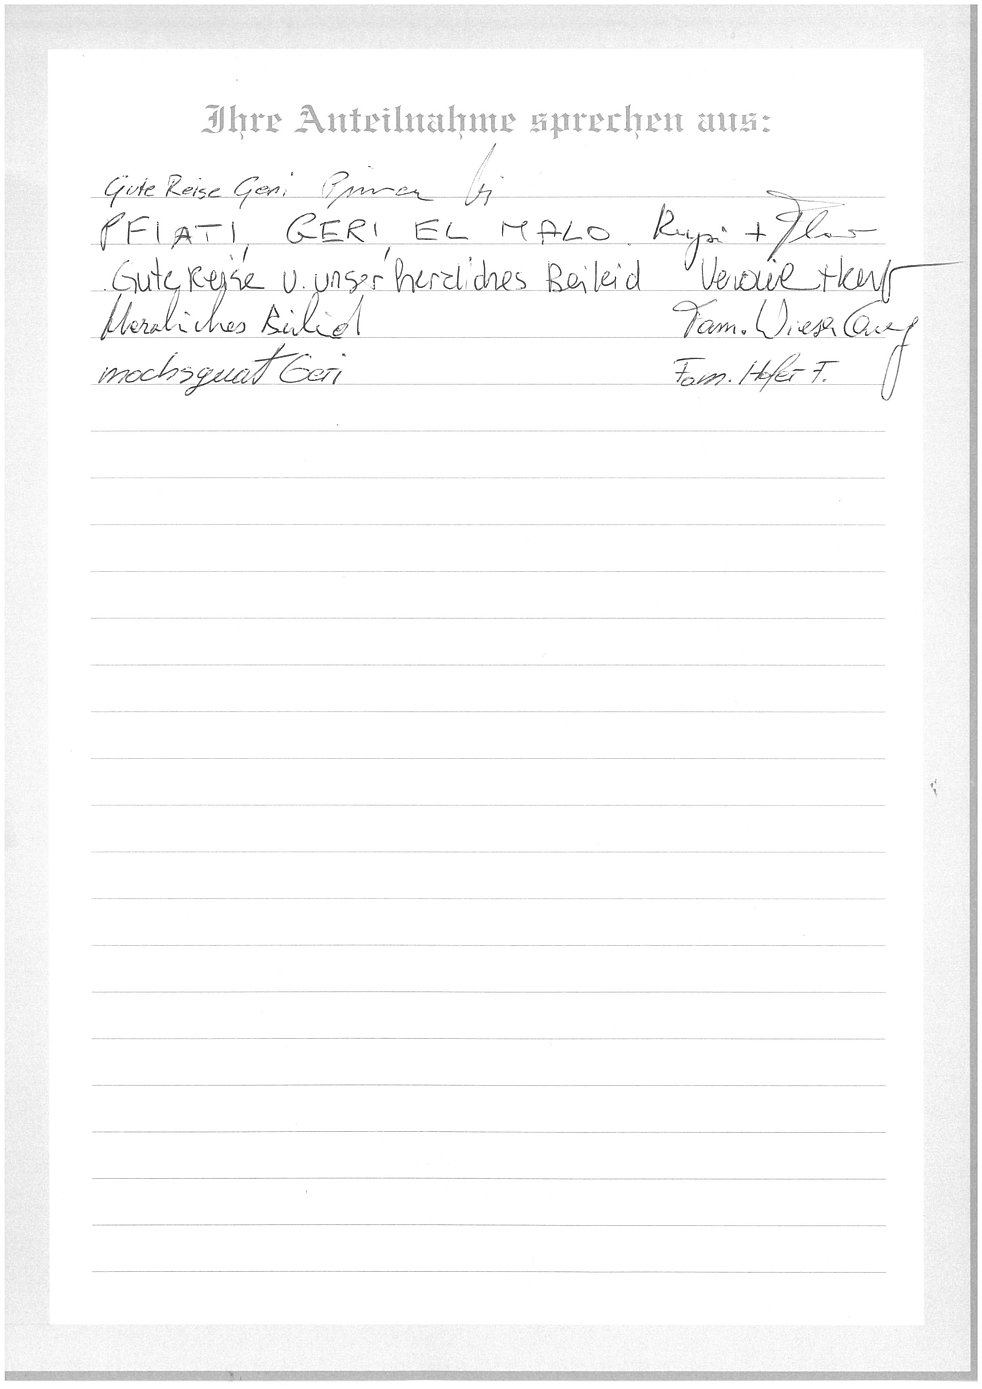 Ihre Anteilnahme sprechen aus:
Gute Reise Geri
PFIATI, GERI, EL MALO. + Flo
Gute Reise u. unser herzliches Beileid
Herzliches Beileid Fam. Wieser
machsguat Geri Fam. Hofer F.